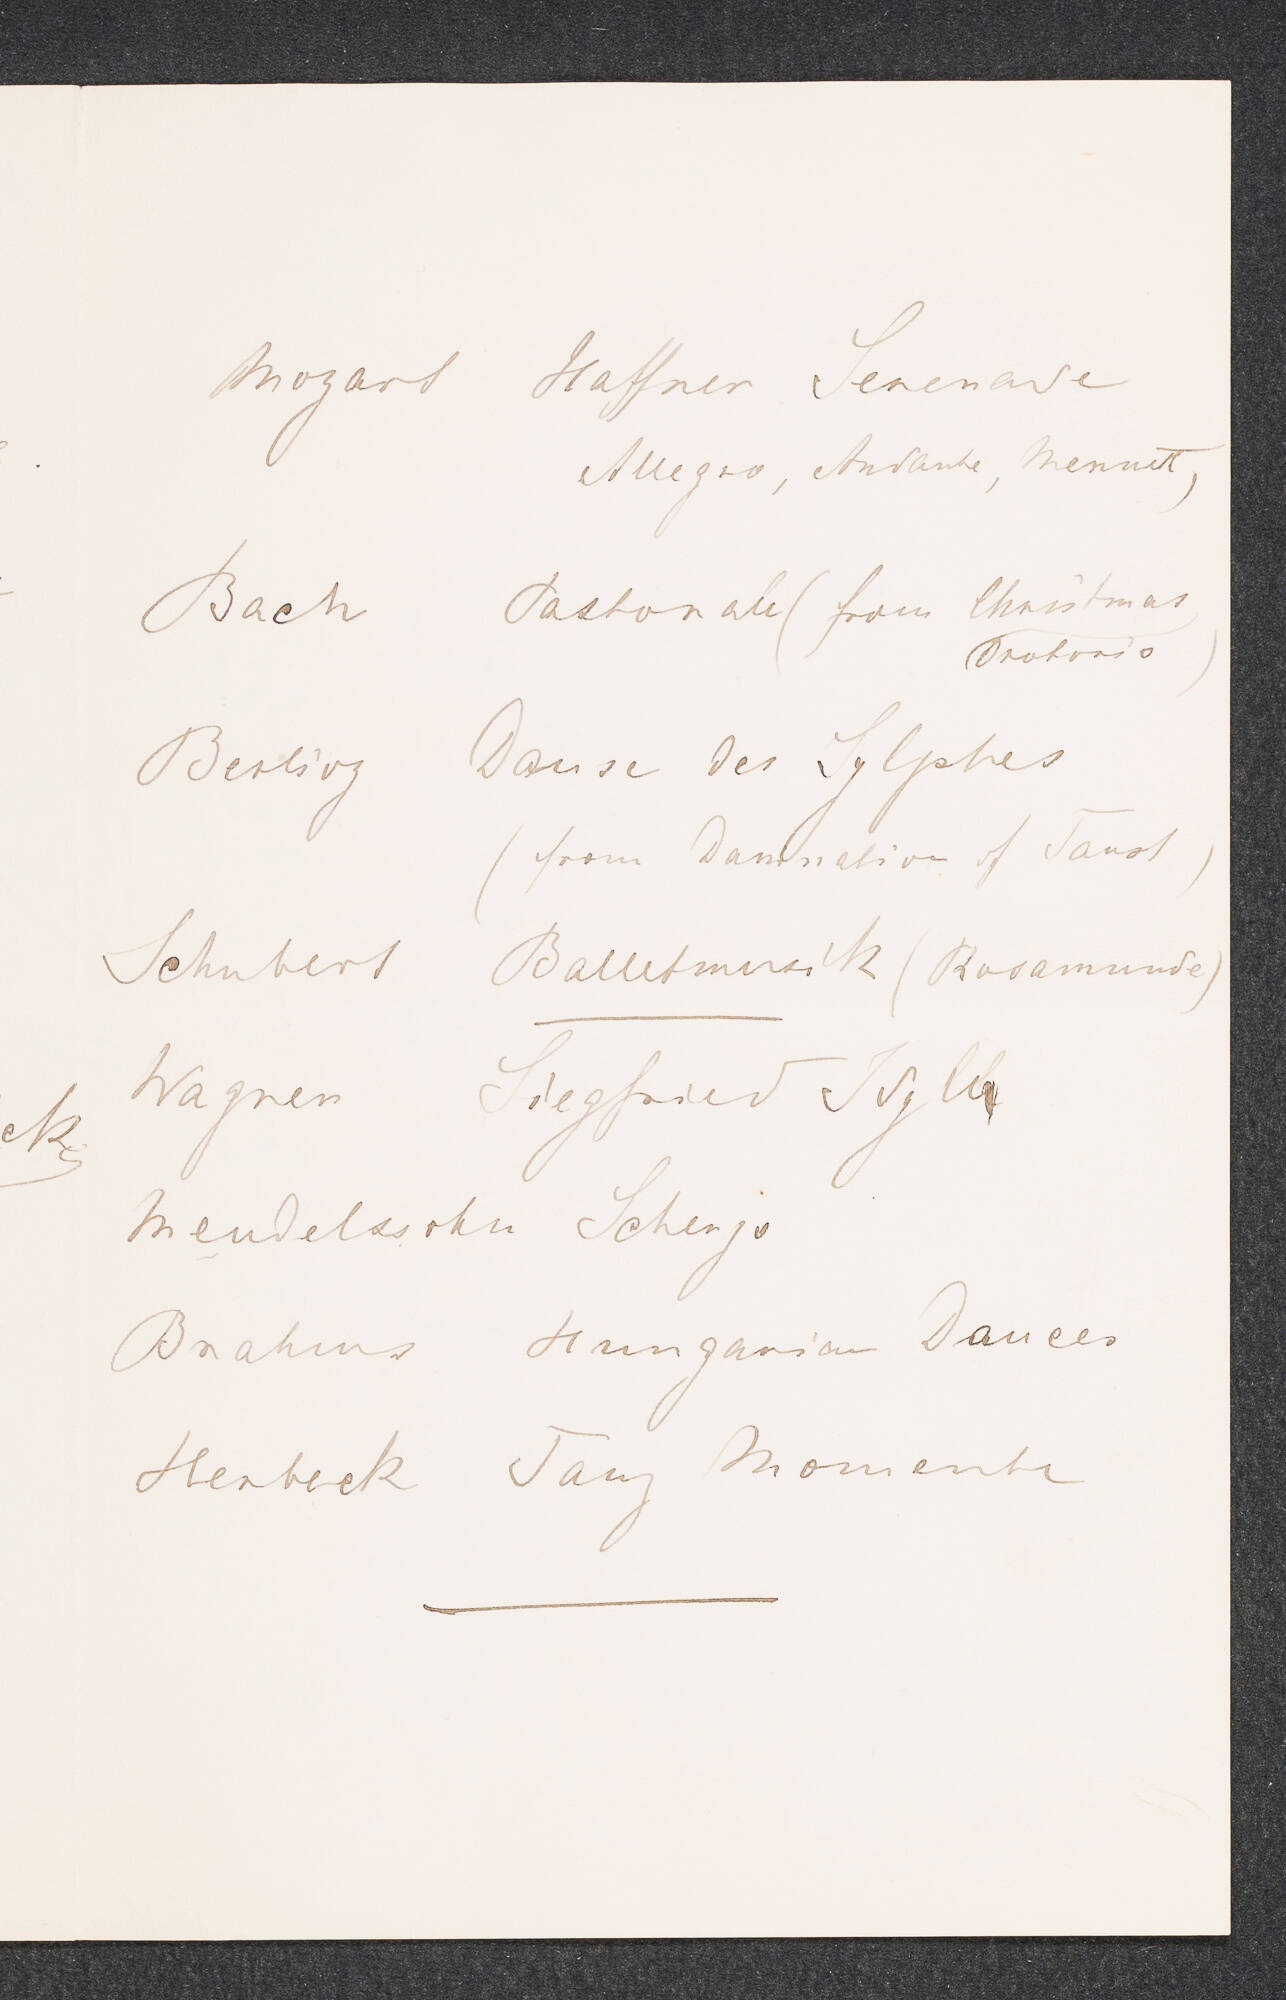 Mozart Haffner Serenade
Allegro, Andante, Menuett,
Bach Pastorale (from Christmas
Oratorio)
Berlioz Danse des Sylphes
(from Damnation of Faust)
Schubert Balletmusik (Rosamunde)
Wagner Siegfried Idyll
Mendelssohn Scherzo
Brahms Hungarian Dances
Herbeck Tanz Momente